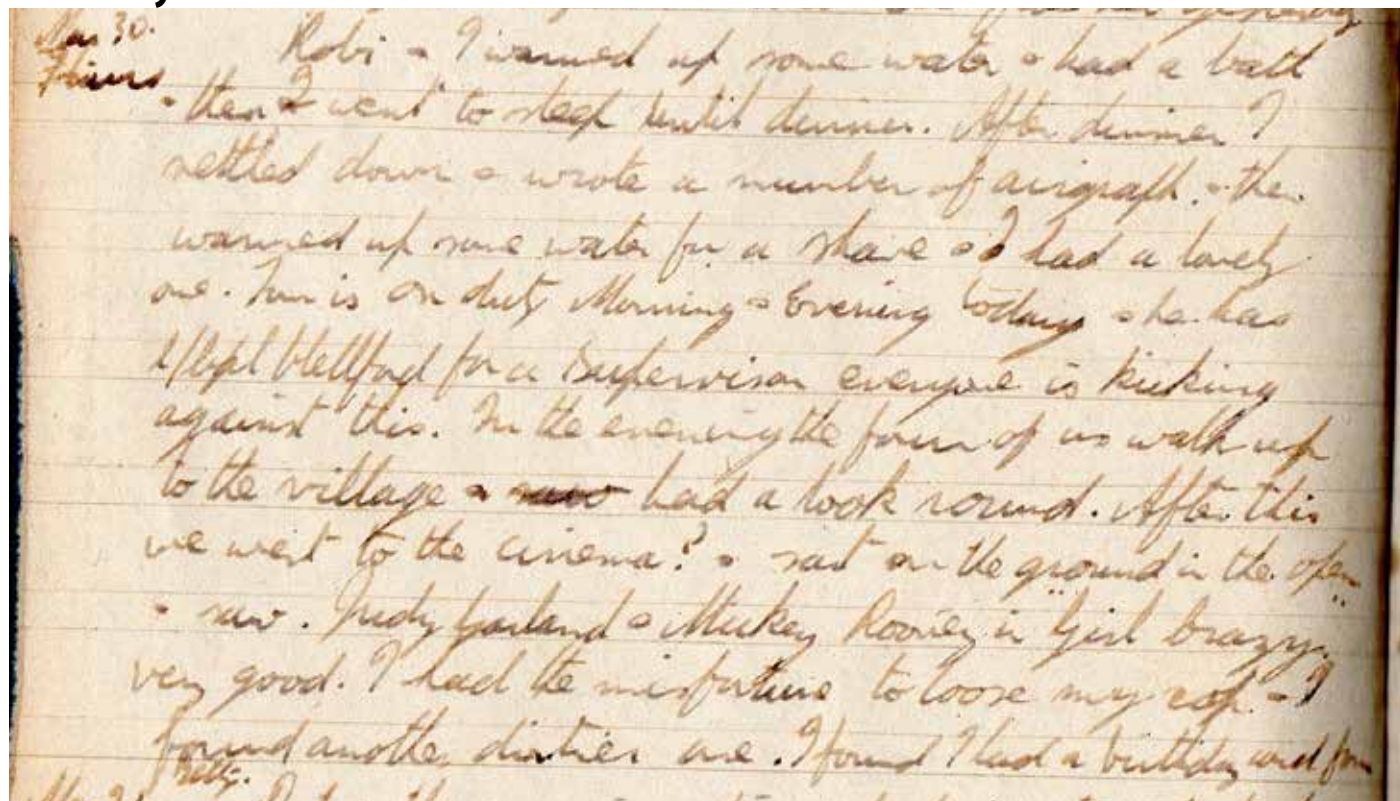 Mar 30.
Thurs
Robi & I warmed up some water & had a bath
& then I went to sleep until dinner. After dinner I
settled down & wrote a number of airgraph. & the
warmed up some water for a shave & I had a lovely
one. is on duty Morning & Evening today & he has
for a Supervisor everyone is kicking
against this. In the evening the four of us walk up
to the village & saw had a look round. After this
we went to the cinema? & sat on the ground in the open
& saw. Judy Garland & Mickey Rooney in "Girl Crazy"
very good. I had the misfortune to loose my cap & I
found another dirtier one. I found I had a birthday card from
Betty.